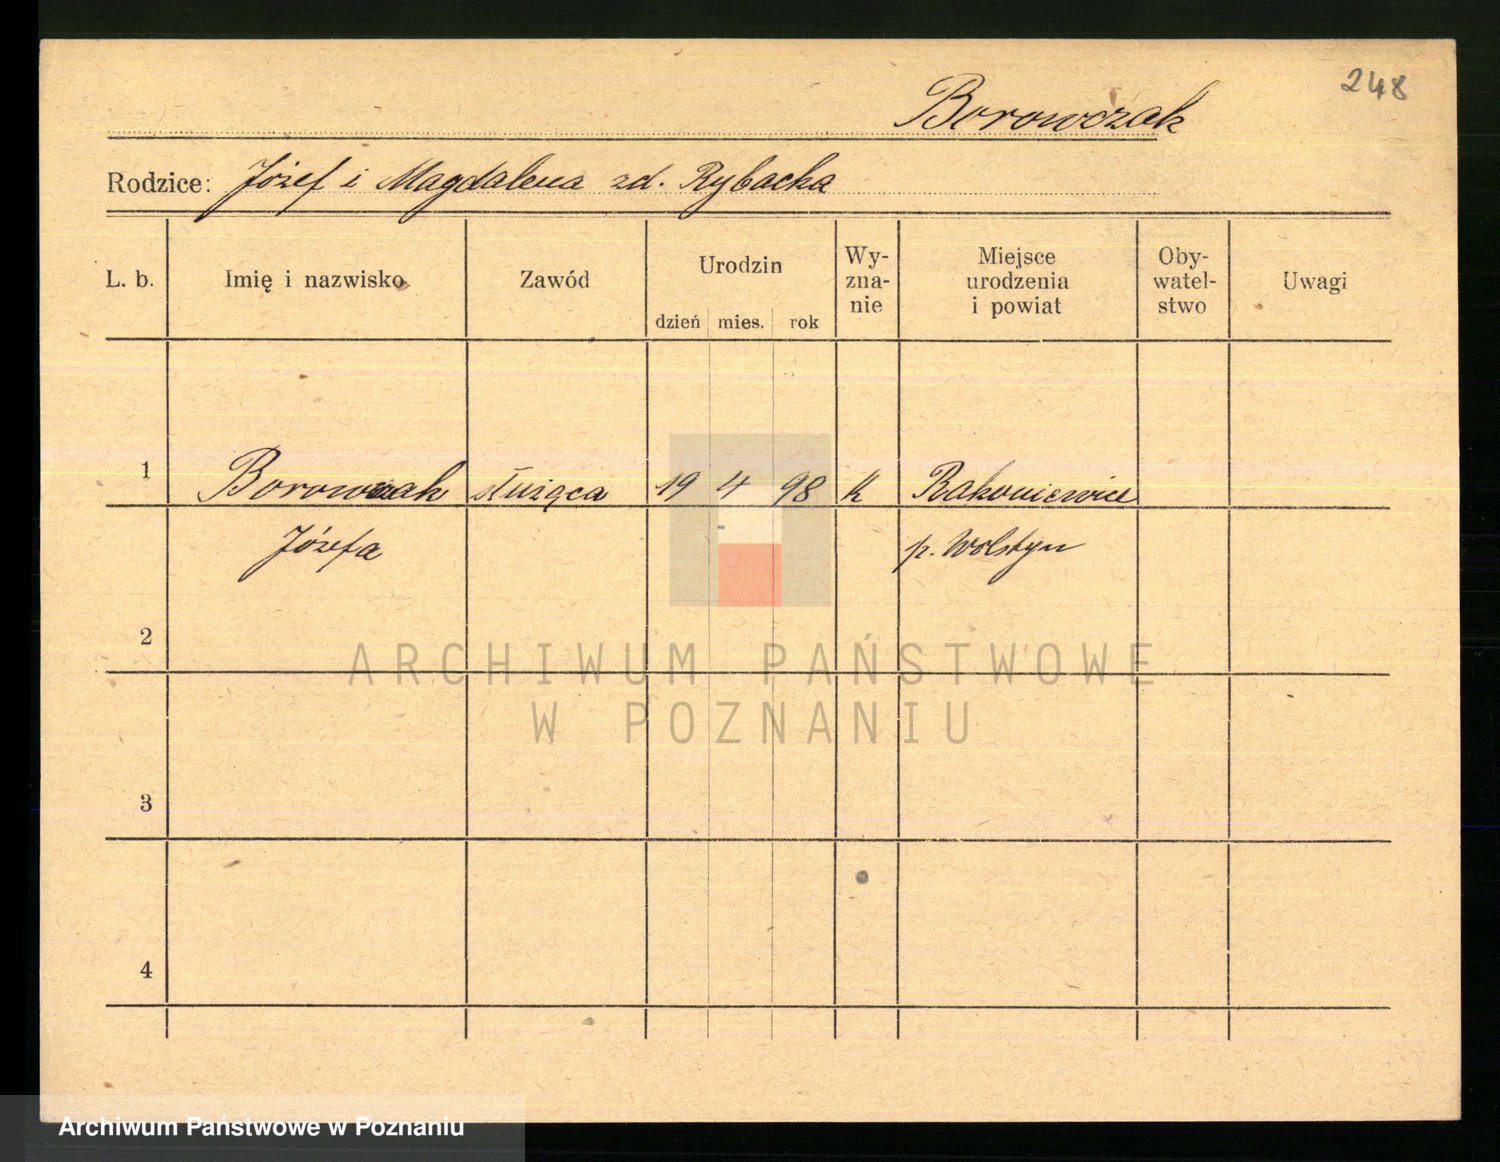 248
Borowczak
Rodzice: Józef i Magdalena zd. Rybacka
L. b. Imię i nazwisko Zawód Urodzin dzień mies. rok Wy-zna-nie Miejsce urodzenia i powiat Oby-watel-stwo Uwagi
1 Borowczak służąca 19 4 98 k Rakoniewice
Józefa p. Wolsztyn
2
ARCHIWUM PAŃSTWOWE
W POZNANIU
3
4
Archiwum Państwowe w Poznaniu